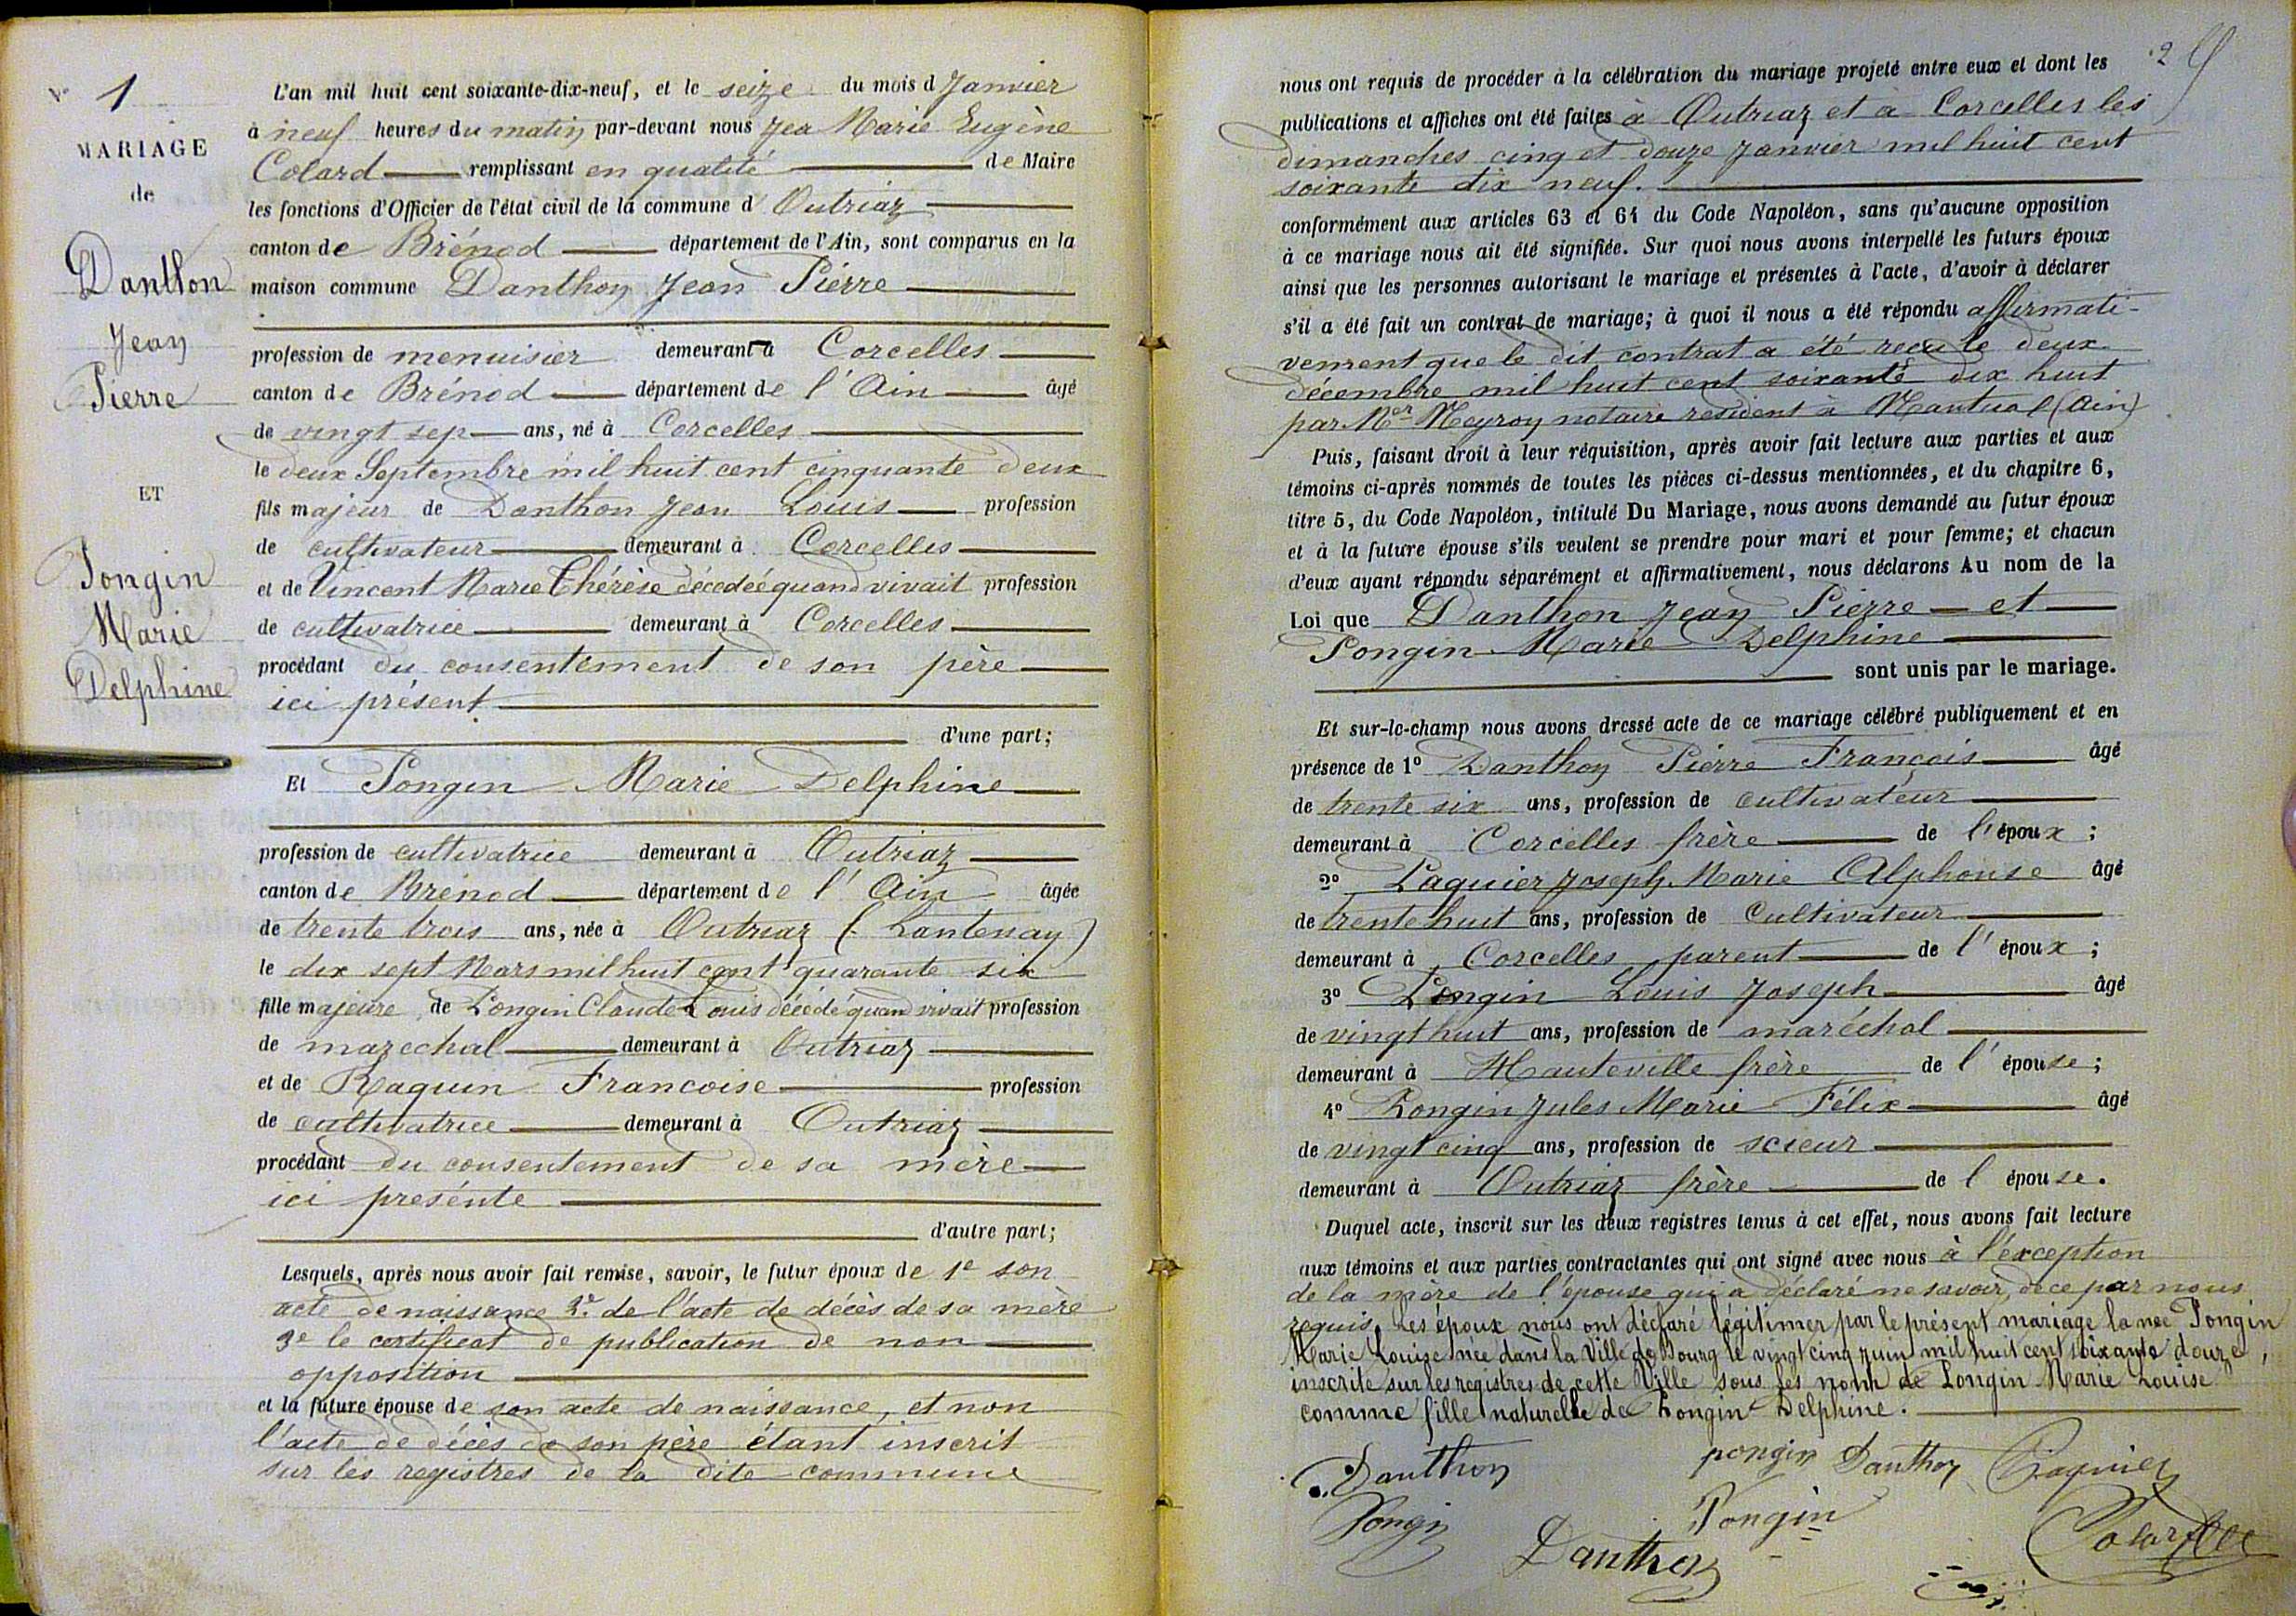 N° 1
MARIAGE
de
Danthon
Jean
Pierre
ET
Pongin
Marie
Delphine
L'an mil huit cent soixante-dix-neuf, et le seize du mois d Janvier
à neuf heures du matin par-devant nous Jea Marie Eugène
Colard remplissant en qualité de Maire
les fonctions d'Officier de l'état civil de la commune d Outriaz
canton de Brénod département de l'Ain, sont comparus en la
maison commune Danthon Jean Pierre
profession de menuisier demeurant à Corcelles
canton de Brénod département de l'Ain âgé
de vingt sep ans, né à Corcelles
le deux Septembre mil huit cent cinquante deux
fils majeur de Danthon Jean Louis profession
de cultivateur demeurant à Corcelles
et de Vincent Marie Thérèse décedeé quand vivait profession
de cultivatrice demeurant à Corcelles
procédant du consentement de son père
ici présent
d'une part;
Et Pongin Marie Delphine
profession de cultivatrice demeurant à Outriaz
canton de Brenod département de l'Ain âgée
de trente trois ans, née à Outriaz (Lantenay)
le dix sept Mars mil huit cent quarante six
fille majeure de Pongin Claude Louis décédé quand vivait profession
de marechal demeurant à Outriaz
et de Raquin Francoise profession
de cultivatrice demeurant à Outriaz
procédant du consentement de sa mère
ici presénte
d'autre part;
Lesquels, après nous avoir fait remise, savoir, le futur époux de 1e son
acte de naissance 2e de l'acte de décès de sa mère
3e le certificat de publication de non
opposition
et la future épouse de son acte de naissance, et non
l'acte de décès de son père étant inscrit
sur les registres de la dite commune
2
nous ont requis de procéder à la célébration du mariage projeté entre eux et dont les
publications et affiches ont été faites à Outriaz et à Corcelles les
dimanches cinq et douze Janvier mil huit cent
soixante dix neuf.
conformément aux articles 63 et 64 du Code Napoléon, sans qu'aucune opposition
à ce mariage nous ait été signifiée. Sur quoi nous avons interpellé les futurs époux
ainsi que les personnes autorisant le mariage et présentes à l'acte, d'avoir à déclarer
s'il a été fait un contrat de mariage; à quoi il nous a été répondu affirmati-
vement que le dit contrat a été reçu le deux
décembre mil huit cent soixante dix huit
par Mer Meyroy notaire resident à Nantua (Ain)
Puis, faisant droit à leur réquisition, après avoir fait lecture aux parties et aux
témoins ci-après nommés de toutes les pièces ci-dessus mentionnées, et du chapitre 6,
titre 5, du Code Napoléon, intitulé Du Mariage, nous avons demandé au futur époux
et à la future épouse s'ils veulent se prendre pour mari et pour femme; et chacun
d'eux ayant répondu séparément et affirmativement, nous déclarons Au nom de la
Loi que Danthon Jean Pierre et
Pongin Marie Delphine
sont unis par le mariage.
Et sur-le-champ nous avons dressé acte de ce mariage célébré publiquement et en
présence de 1° Danthon Pierre François âgé
de trente six ans, profession de cultivateur
demeurant à Corcelles frère de l'époux;
2° Paquier Joseph Marie Alphonse âgé
de trente huit ans, profession de Cultivateur
demeurant à Corcelles parent de l'époux;
3° Pongin Louis Joseph âgé
de vingt huit ans, profession de maréchal
demeurant à Hauteville frère de l'épouse;
4° Pongin Jules Marie Félix âgé
de vingt cinq ans, profession de scieur
demeurant à Outriaz frère de l'épouse.
Duquel acte, inscrit sur les deux registres tenus à cet effet, nous avons fait lecture
aux témoins et aux parties contractantes qui ont signé avec nous à l'exception
de la mère de l'épouse qui a déclaré ne savoir, de ce par nous
requis. Les époux nous ont déclaré légitimer par le présent mariage la nee Pongin
Marie Louise née dans la Ville de Bourg le vingt cinq juin mil huit cent soixante douze,
inscrite sur les registres de cette Ville sous les nom de Pongin Marie Louise
comme fille naturelle de Pongin Delphine.
Danthon pongin Danthon Paquier
Pongin Pongin
Danthon Colard